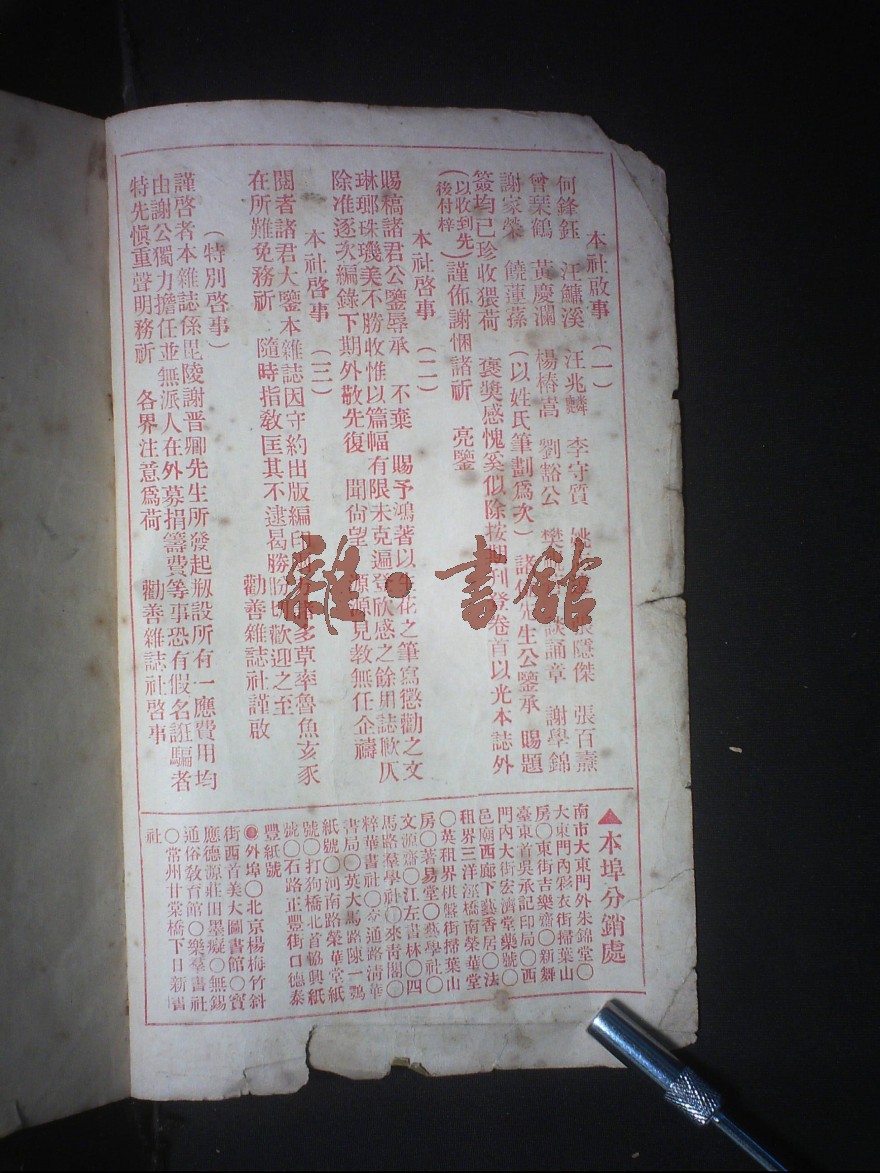 本社啟事　(一)
何鋒鈺　汪鱅溪　汪兆麟　李守質　姚　張隱傑　張百熹
曾棨鶴　黃慶瀾　楊椿嵩　劉豁公　樊　談誦章　謝學錦
謝家榮　饒蓮蓀　(以姓氏筆劃爲次)　諸　先生公鑒承　賜題
簽均已珍收猥荷　褒獎感愧奚似除按期刊登卷首以光本誌外
(以收到先後付梓)謹佈謝悃諸祈　亮鑒
本社啓事　(二)
賜稿諸君公鑒辱承　不棄　賜予鴻著以生花之筆寫懲勸之文
琳瑯珠璣美不勝收惟以篇幅有限未克遍登欣感之餘用誌歉仄
除准逐次編錄下期外敬先復　聞尙望　源源見教無任企禱
本社啓事　(三)
閱者諸君大鑒本雜誌因守約出版編印　多草率魯魚亥豕
在所難免務祈　隨時指敎匡其不逮曷勝盼切歡迎之至
勸善雜誌社謹啟
(特別啓事)
謹啓者本雜誌係毘陵謝晋卿先生所發起剏設所有一應費用均
由謝公獨力擔任並無派人在外募捐籌費等事恐有假名誑騙者
特先愼重聲明務祈　各界注意爲荷　勸善雜誌社啓事
▲本埠分銷處
南市大東門外朱錦堂〇
大東門內彩衣街掃葉山
房〇東街吉樂齋〇新舞
臺東首吳承記印局〇西
門內大街宏濟堂藥號〇
邑廟西廊下藝香居〇法
租界三洋涇橋南榮華堂
〇英租界棋盤街掃葉山
房〇著易堂〇藝學社〇
文源齋〇江左書林〇四
馬路羣學社〇來青閣〇
粹華書社〇交通路淸華
書局〇英大馬路陳一鶚
紙號〇河南路榮華堂紙
號〇打狗橋北首協興紙
號〇石路正豐街口德泰
豐紙號
●外埠〇北京楊梅竹斜
街西首美大圖書館〇寶
應德源莊田墨凝〇無錫
通俗敎育館〇樂羣書社
〇常州甘棠橋下日新書
社
雜·書館